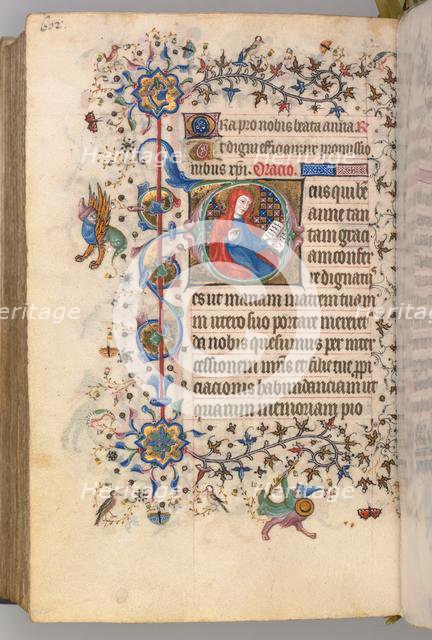 602.
Ora pro nobis beata anna R
Et digni efficiamur promissio
nibus xpi. Oracio.
Deus qui be
anne tan
tam graci
am confer
re dignatus
es ut mariam matrem tuam
in utero suo portare mereret
da nobis quesumus per inter
cessionem
habundanciam ut
quarum memoriam pio
heritage
Heritage
Heritage
Heritage
Heritage
Heritage